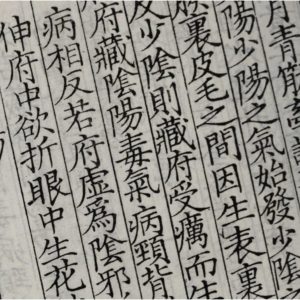 月青筋
陽少陽之氣始發少陰
裏皮毛之間因生表裏
反少陰則藏府受癘而生
府藏陰陽毒氣病頸背
病相反若府虛為陰邪
伸府中欲折眼中生花